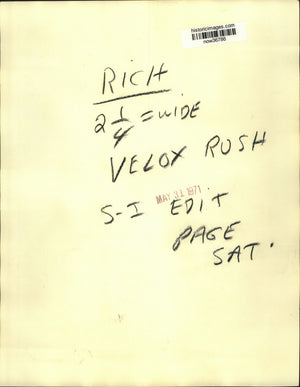 historicimages.com
now36798
RICH
2 1/4 = WIDE
VELOX RUSH
MAY 31 1971
S-I EDIT
PAGE
SAT.